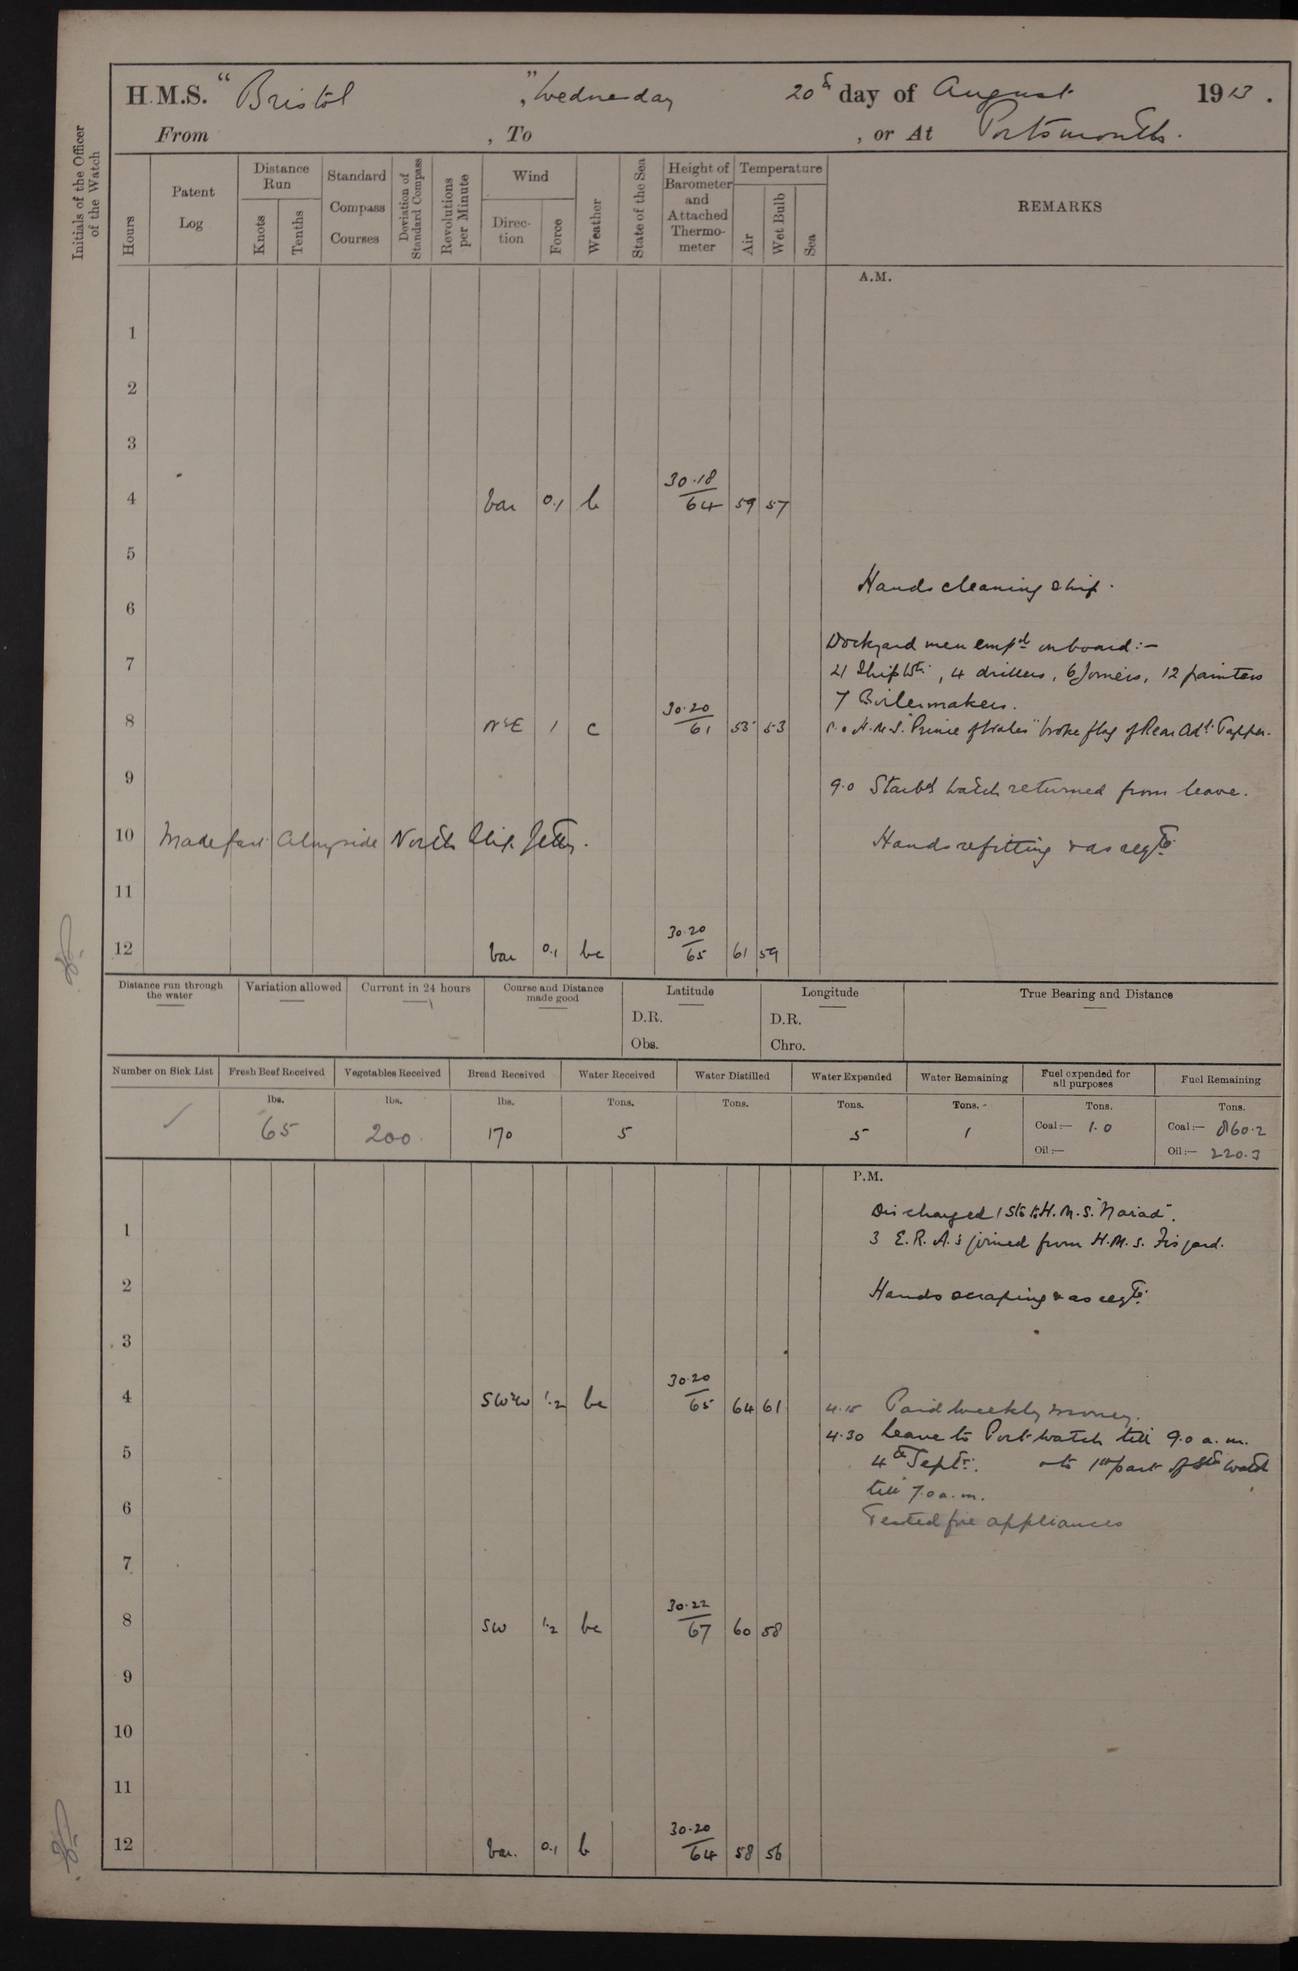 H.M.S. "Bristol", Wednesday 20th day of August 1913.
From , To , or At Portsmouth.
Initials of the Officer of the Watch
Hours
Patent Log
Distance Run
Knots
Tenths
Standard Compass Courses
Deviation of Standard Compass
Revolutions per Minute
Wind
Direction
Force
Weather
State of the Sea
Height of Barometer and Attached Thermometer
Temperature
Air
Wet Bulb
Sea
REMARKS
A.M.
1
2
3
4 var 0.1 b 30.18/64 59 57
5
Hands cleaning ship.
6
Dockyard men empd onboard:-
7 21 Shipwts, 4 drillers, 6 Joiners, 12 painters
7 Boilermakers.
8 N'E 1 c 30.20/61 55 53 H.M.S. "Prince of Wales" broke flag of Rear Adl. Tupper.
9 9.0 Starbd watch returned from leave.
10 Made fast alongside North Slip Jetty. Hands refitting & as reqte.
11
12 var 0.1 bc 30.20/65 61 59
Distance run through the water
Variation allowed
Current in 24 hours
Course and Distance made good
Latitude
D.R.
Obs.
Longitude
D.R.
Chro.
True Bearing and Distance
Number on Sick List
Fresh Beef Received lbs. 65
Vegetables Received lbs. 200.
Bread Received lbs. 170
Water Received Tons. 5
Water Distilled Tons.
Water Expended Tons. 5
Water Remaining Tons. 1
Fuel expended for all purposes Tons.
Coal:— 1.0
Oil:—
Fuel Remaining Tons.
Coal:— 860.2
Oil:— 220.3
P.M.
Discharged 1 Sto to H.M.S. "Naiad".
1 3 E.R.A.s joined from H.M.S. Fisgard.
2 Hands scraping & as reqte.
3
4 SW'W 1.2 bc 30.20/65 64 61 4.15 Paid weekly money.
4.30 Leave to Port watch till 9.0 a.m.
5 4th Septr. & to 1st part of Stbd watch
till 7.0 a.m.
6 Tested fire appliances
7
8 SW 1.2 bc 30.22/67 60 58
9
10
11
12 var. 0.1 b 30.20/64 58 56